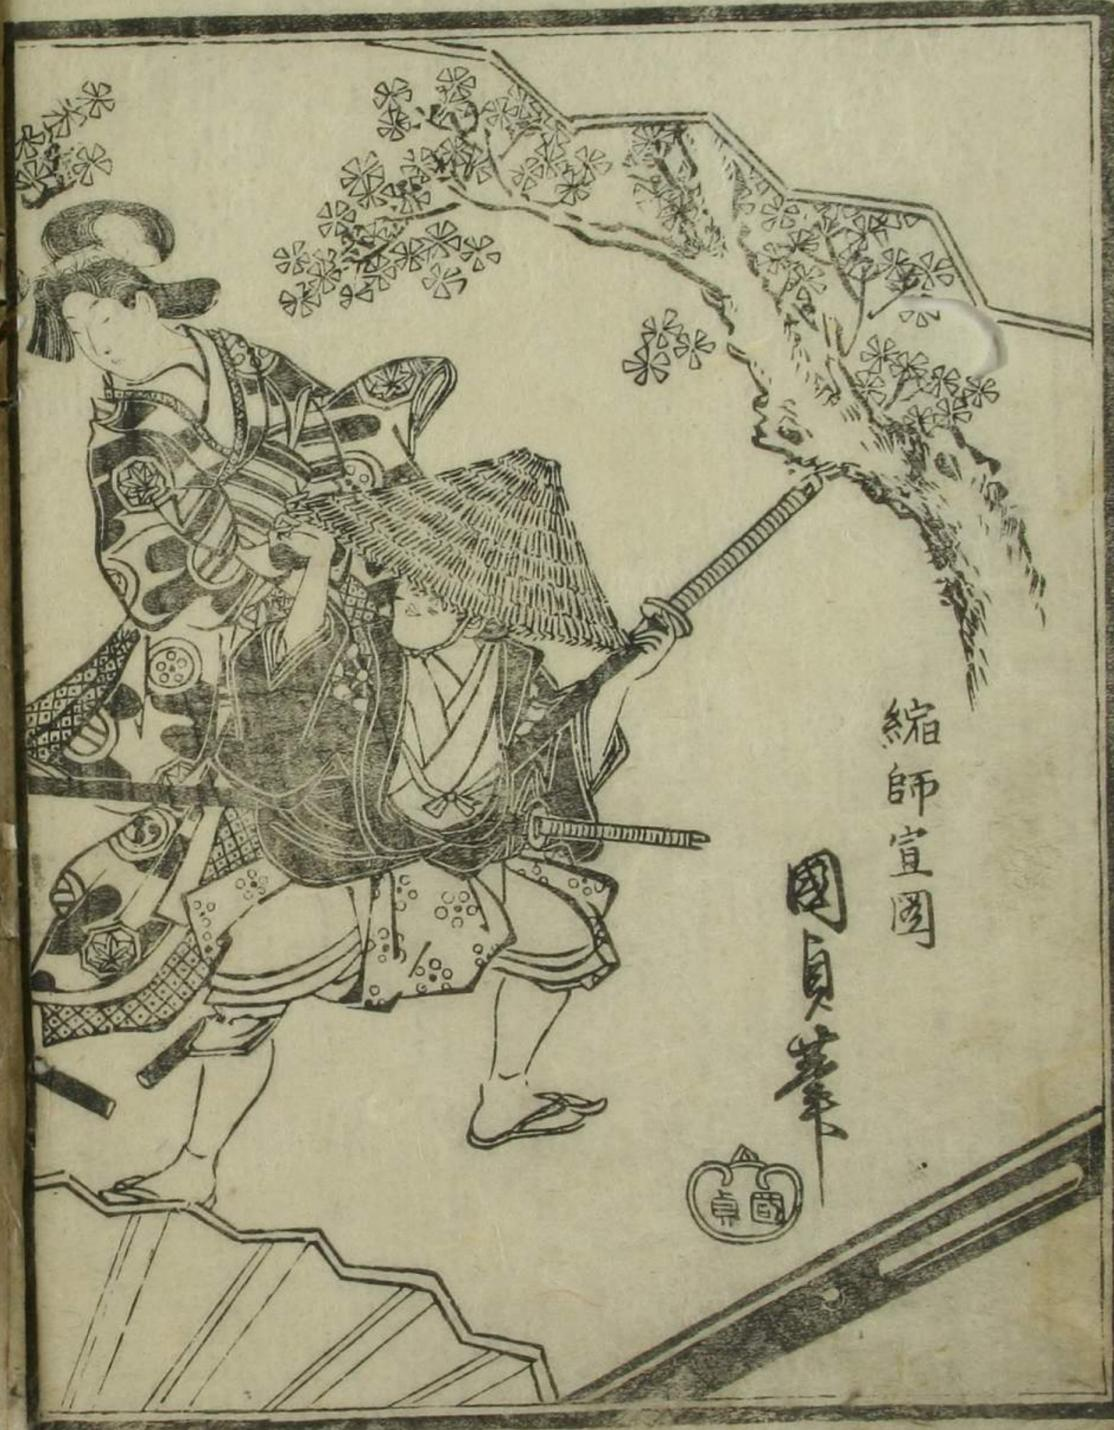 縮師宣図
國貞筆
國貞